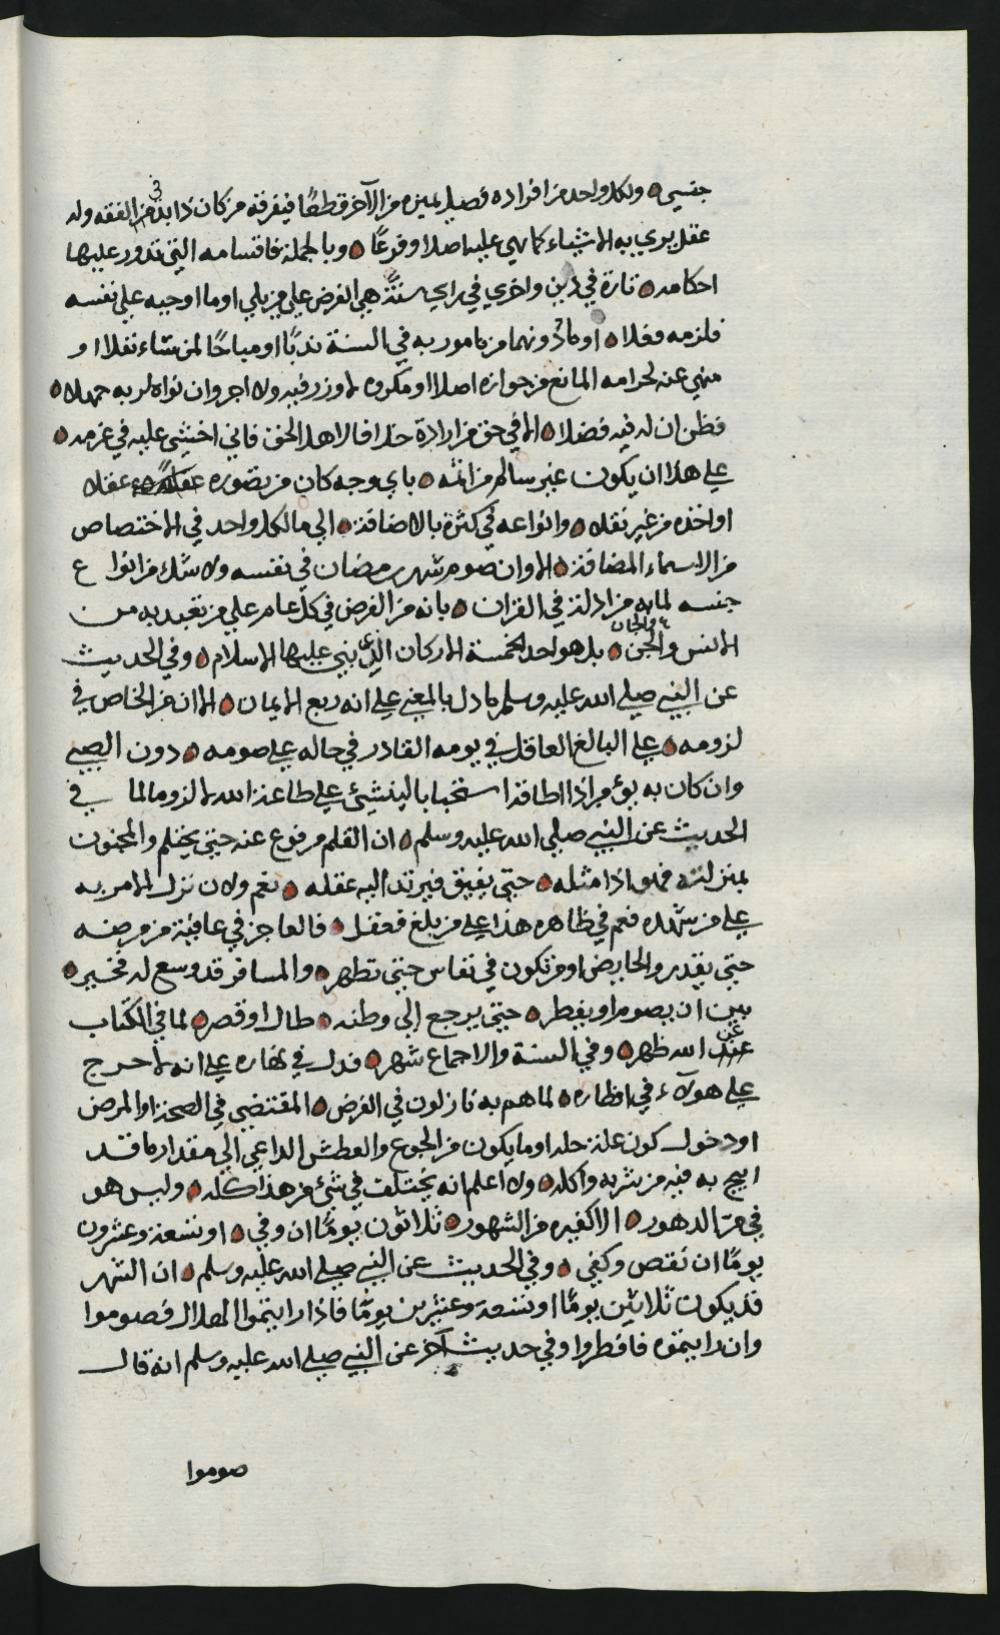 جنسي ولكل واحد من افراده فصيل يميزه من الآخر قطعًا فيفرقه من كان ذا بد في الفقه وله
عقل يري به الاشياء كما هي عليه اصلا وفرعًا وبالجملة فاقسامه التي تدور عليها
احكامه تارة في دين واخري في راي سنة هي الفرض علي من بلي او ما اوجبه علي نفسه
فلزمه فعلا او ما دونهما من مامور به في السنة ندبًا او مباحًا لمن شاء نفلا او
منهي عنه لحرامه المانع من جوازه اصلا او مكروه لا وزر فيه ولا اجر وان نواه لربه جهلا
فظن ان له فيه فضلا الا في حق من ارادة خلافا لاهل الحق فاني اخشي عليه في عزمه
علي هذا ان يكون غير سالم من اثمه باي وجه كان من تصوره عقلا
او اخذه من غير نقله وانواعه في كثرة بالاضافة الي ما لكل واحد في الاختصاص
من الاسماء المضافة الا وان صوم شهر رمضان في نفسه ولا شك من انواع
جنسه لما به من ادلة في القران بانه من الفرض في كل عام علي من تعبد به من
الانس والجن بل هو احد الخمسة الاركان الذي بني عليها الاسلام وفي الحديث
عن النبي صلي الله عليه وسلم ما دل بالمعني علي انه ربع الايمان الا انه من الخاص في
لزومه علي البالغ العاقل في يومه القادر في حاله علي صومه دون الصبي
وان كان به يؤمر اذا اطاقه استحبابا لينشئ علي طاعة الله لا لزوما لما في
الحديث عن النبي صلي الله عليه وسلم ان القلم مرفوع عنه حتي يحتلم والمجنون
بمنزلته فهو اذا مثله حتي يفيق فيرتد اليه عقله نعم ولان نزل الامر به
علي من شهده فعم في ظاهره هذا علي من بلغ فعقل فالعاجز في عافيته من مرضه
حتي يقدر والحايض او من تكون في نفاس حتي تطهر والمسافر قد وسع له فخير
بين ان يصوم او يفطر حتي يرجع الي وطنه طال او قصر لما في الكتاب
عن الله ظهر وفي السنة والاجماع شهر فدل في نهاره علي انه لا حرج
علي هولاء في افطاره لما هم به نازلون في الفرض المقتضي في الصحة او المرض
او دخول كون علة حله او ما يكون من الجوع والعطش الداعي الي مقدار ما قد
ابيح به فيه من شربه واكله ولا اعلم انه يختلف في شئ من هذا كله وليس هو
في مر الدهور الا كغيره من الشهور ثلاثون يومًا ان وفي او تسعة وعشرون
يومًا ان نقص وكفي وفي الحديث عن النبي صلي الله عليه وسلم ان الشهر
قد يكون ثلاثين يومًا او تسعة وعشرين يومًا فاذا رايتموا الهلال فصوموا
وان رايتموه فافطروا وفي حديث آخر عن النبي صلي الله عليه وسلم انه قال
صوموا